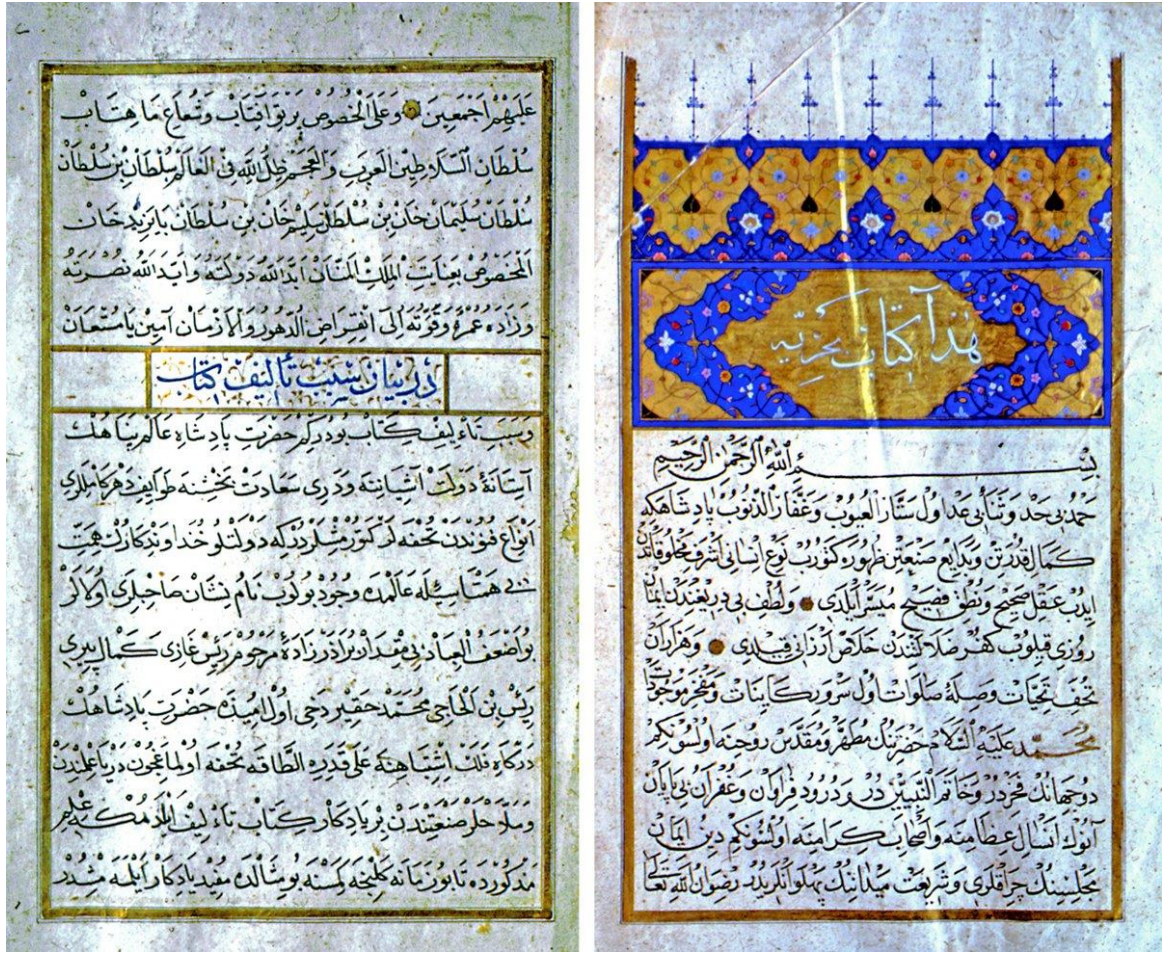 هذا كتاب بحريه
بسم الله الرحمن الرحيم
حمد بی حد و ثنا بی عد اول ستار العیوب و غفار الذنوب پادشاهه که
کمال قدرتن و بدایع صنعتین ظهوره کتوروب نوع انسانی اشرف مخلوقاتدن
ایدب عقل صحیح و نطق فصیح میسر ایلدی و لطف بی دریغندن ایمان
روزی قیلوب کفر ضلالتندن خلاص ارزانی قیلدی و هزاران
تحف تحیات و صله صلوات اول سرور کاینات و مفخر موجودات
محمد علیه السلام حضرتنك مطهر و مقدس روحنه اولسون کیم
دو جهانك فخردر و خاتم النبیین در و درود فراوان و غفران بی پایان
آنوك انسال عظامنه و اصحاب کرامنه اولسون کیم دین ایمان
مجلسینك چراقلری و شریعت میدانینك پهلوانلریدر رضوان الله تعالی
علیهم اجمعین و علی الخصوص پرتو آفتاب و شعاع ماهتاب
سلطان السلاطین العرب و العجم ظل الله فی العالم سلطان بن سلطان
سلطان سلیمان خان بن سلطان سلیم خان بن سلطان بایزید خان
المخصوص بعنایت الملك المنان ابد الله دولته و اید الله نصرته
و زاده عمره و قوته الی انقراض الدهور و الازمان آمین یا مستعان
در بیان سبب تألیف کتاب
و سبب تاءلیف کتاب بودر کیم حضرت پادشاه عالم پناهك
آستانهٔ دولت آشیاننه و دری سعادت بخشنه طوایف دهر کاملری
انواع فنوندن تحفه لر کتورمشلردر که دولتلو خداوندکارك همت
بی همتاسیله عالمده وجود بولوب نام نشان صاحبلری اولالر
بو اضعف العباد بی مقدار برادر زادهٔ مرحوم رئیس غازی کمال پیری
رئیس بن الحاجی محمد حقیر دخی اول امیده حضرت پادشاهك
درکاه فلك اشتباهنه علی قدره الطاقه تحفه اولماغچون دریا علمندن
و ملاحلر صنعتندن بر یادکار کتاب تاءلیف ایلدم که علم
مذکورده تا بو زمانه کلنجه کمسنه بو مثالده مفید یادکار ایلمه مشدر